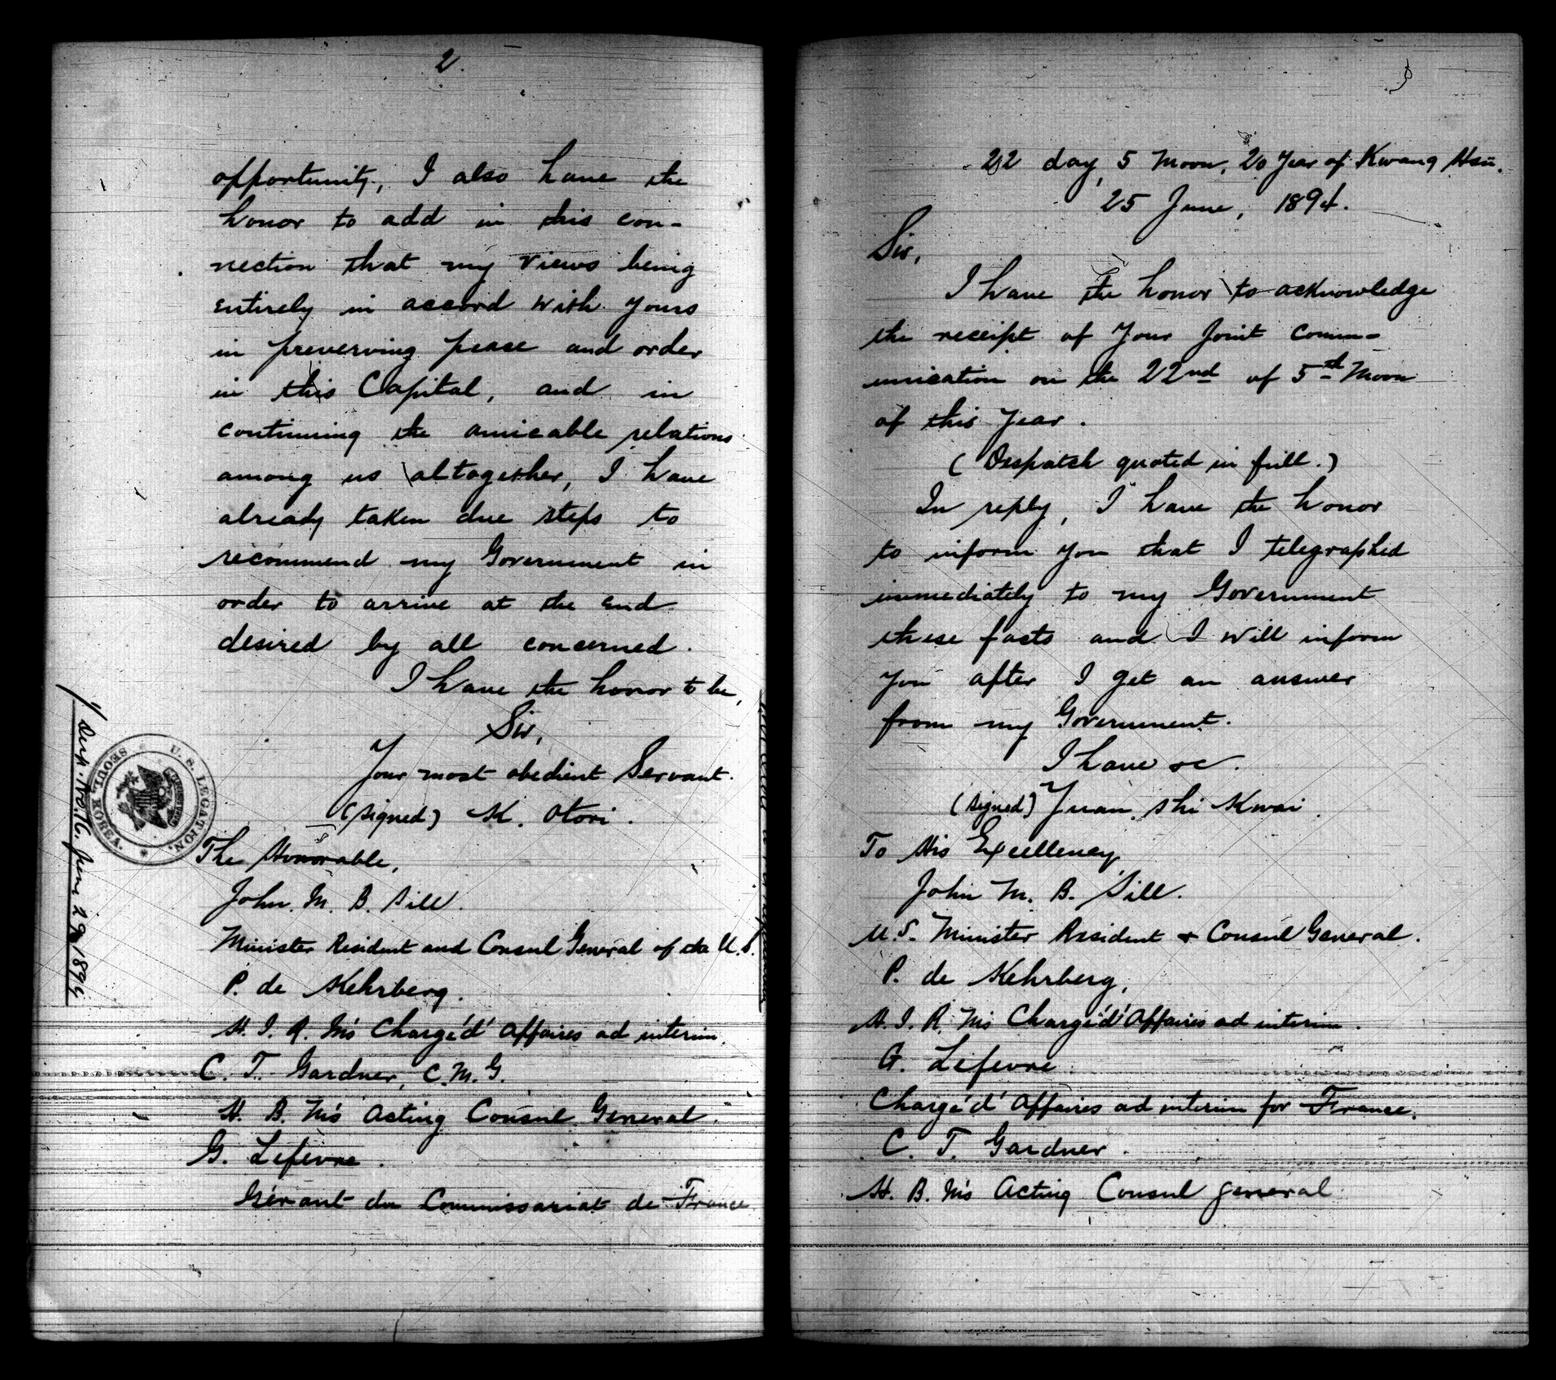 2.
opportunity, I also have the
honor to add in this con-
nection that my views being
entirely in accord with yours
in preserving peace and order
in this Capital, and in
continuing the amicable relations
among us altogether, I have
already taken due steps to
recommend my Government in
order to arrive at the end
desired by all concerned.
I have the honor to be,
Sir,
Your most obedient Servant.
(signed) K. Otori.
The Honorable,
John. M. B. Sill.
Minister Resident and Consul General of the U.S.
P. de Kehrberg.
H. I. R. M's Chargé d' Affaires ad interim.
C. T. Gardner, C.M.G.
H. B. M's Acting Consul General.
G. Lefevre.
Gérant du Commissariat de France
U.S. LEGATION.
SEOUL, KOREA.
Dup. No. 16. June 29, 1894
3
22 day, 5 Moon, 20 Year of Kwang Hsu.
25 June, 1894.
Sir,
I have the honor to acknowledge
the receipt of Your Joint Comm-
unication on the 22nd of 5th Moon
of this Year.
(Despatch quoted in full.)
In reply, I have the honor
to inform you that I telegraphed
immediately to my Government
these facts and I will inform
you after I get an answer
from my Government.
I have &c.
(signed) Yuan Shi Kwai.
To His Excellency
John M. B. Sill.
U.S. Minister Resident & Consul General.
P. de Kehrberg,
H. I. R. M's Chargé d' Affaires ad interim.
G. Lefevre
Chargé d' Affaires ad interim for France.
C. T. Gardner.
H. B. M's Acting Consul general